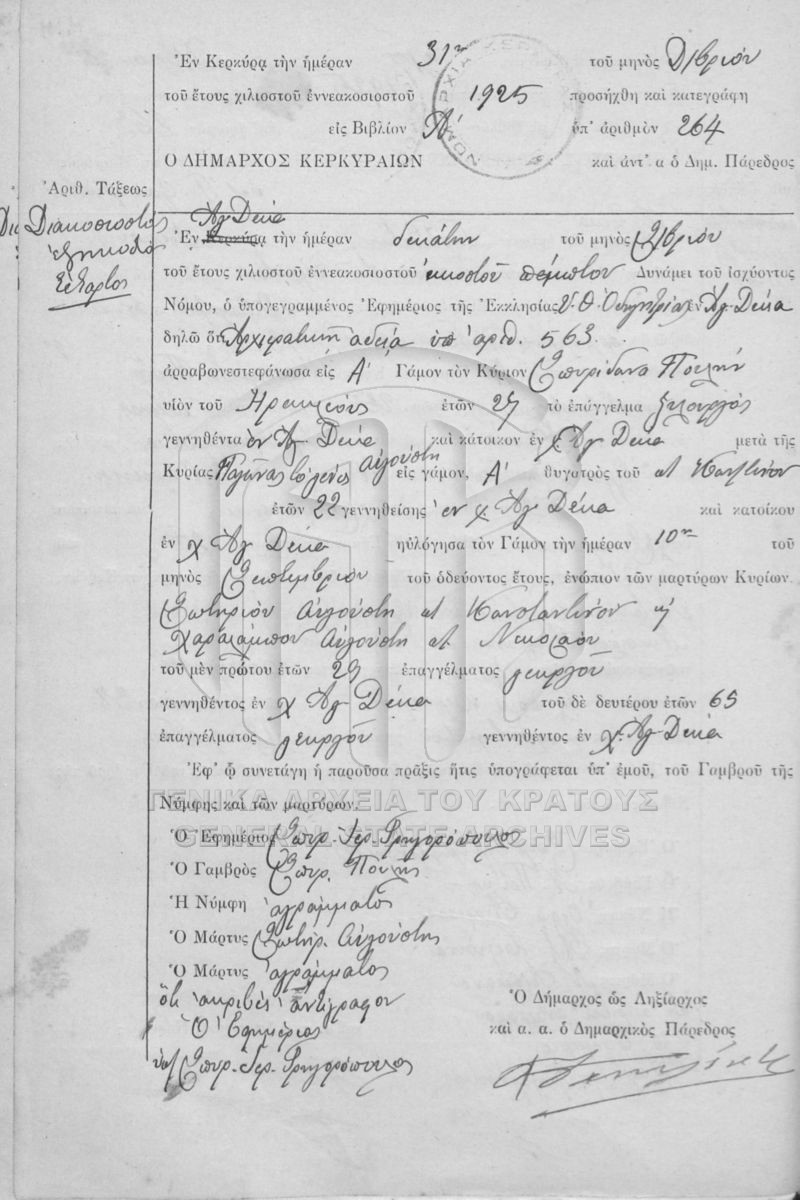 Ἐν Κερκύρᾳ τὴν ἡμέραν 31ην τοῦ μηνὸς Δ/βρίου
τοῦ ἔτους χιλιοστοῦ ἐννεακοσιοστοῦ 1925 προσήχθη καὶ κατεγράφη
εἰς Βιβλίον Α' ὑπ' ἀριθμὸν 264
Ο ΔΗΜΑΡΧΟΣ ΚΕΡΚΥΡΑΙΩΝ καὶ ἀντ' α ὁ Δημ. Πάρεδρος
Ἀριθ. Τάξεως
Διακοσιοστὸς
ἑξηκοστὸς
τέταρτος
Ἁγ Δέκα
Ἐν Κερκύρᾳ τὴν ἡμέραν δεκάτην τοῦ μηνὸς
τοῦ ἔτους χιλιοστοῦ ἐννεακοσιοστοῦ εἰκοστοῦ πέμπτου Δυνάμει τοῦ ἰσχύοντος
Νόμου, ὁ ὑπογεγραμμένος Ἐφημέριος τῆς Ἐκκλησίας Υ. Θ. Ὁδηγητρίας ἐν Ἁγ Δέκα
δηλῶ ὅτι Ἀρχιερατικῇ ἀδείᾳ ὑπ' ἀριθ. 563
ἀρραβωνεστεφάνωσα εἰς Α' Γάμον τὸν Κύριον Σπυρίδωνα Πουλῆν
υἱὸν τοῦ Ἡρακλέους ἐτῶν 27 τὸ ἐπάγγελμα ξυλουργὸς
γεννηθέντα ἐν Ἁγ Δέκα καὶ κάτοικον ἐν χ Ἁγ Δέκα μετὰ τῆς
Κυρίας τὸ γένος Αὐλούστη εἰς γάμον, Α' θυγατρὸς τοῦ
ἐτῶν 22 γεννηθείσης ἐν χ Ἁγ Δέκα καὶ κατοίκου
ἐν χ Ἁγ Δέκα ηὐλόγησα τὸν Γάμον τὴν ἡμέραν 10ην τοῦ
μηνὸς Σεπτεμβρίου τοῦ ὁδεύοντος ἔτους, ἐνώπιον τῶν μαρτύρων Κυρίων.
Σωτηρίου Αὐλούστη Κωνσταντίνου
Χαραλάμπου Αὐλούστη Νικολάου
τοῦ μὲν πρώτου ἐτῶν 29 ἐπαγγέλματος γεωργοῦ
γεννηθέντος ἐν χ Ἁγ Δέκα τοῦ δὲ δευτέρου ἐτῶν 65
ἐπαγγέλματος γεωργοῦ γεννηθέντος ἐν χ. Ἁγ Δέκα
Ἐφ' ᾧ συνετάγη ἡ παροῦσα πρᾶξις ἥτις ὑπογράφεται ὑπ' ἐμοῦ, τοῦ Γαμβροῦ τῆς
Νύμφης καὶ τῶν μαρτύρων.
ΓΕΝΙΚΑ ΑΡΧΕΙΑ ΤΟΥ ΚΡΑΤΟΥΣ
GENERAL STATE ARCHIVES
Ὁ Ἐφημέριος Σπυρ. Ἱερ. Γρηγορόπουλος
Ὁ Γαμβρὸς Σπυρ. Πουλῆς
Ἡ Νύμφη ἀγράμματος
Ὁ Μάρτυς Σωτήρ. Αὐλούστης
Ὁ Μάρτυς ἀγράμματος
ὅτι ἀκριβὲς ἀντίγραφον
Ὁ Ἐφημέριος
Σπυρ. Ἱερ. Γρηγορόπουλος
Ὁ Δήμαρχος ὡς Ληξίαρχος
καὶ α. α. ὁ Δημαρχικὸς Πάρεδρος